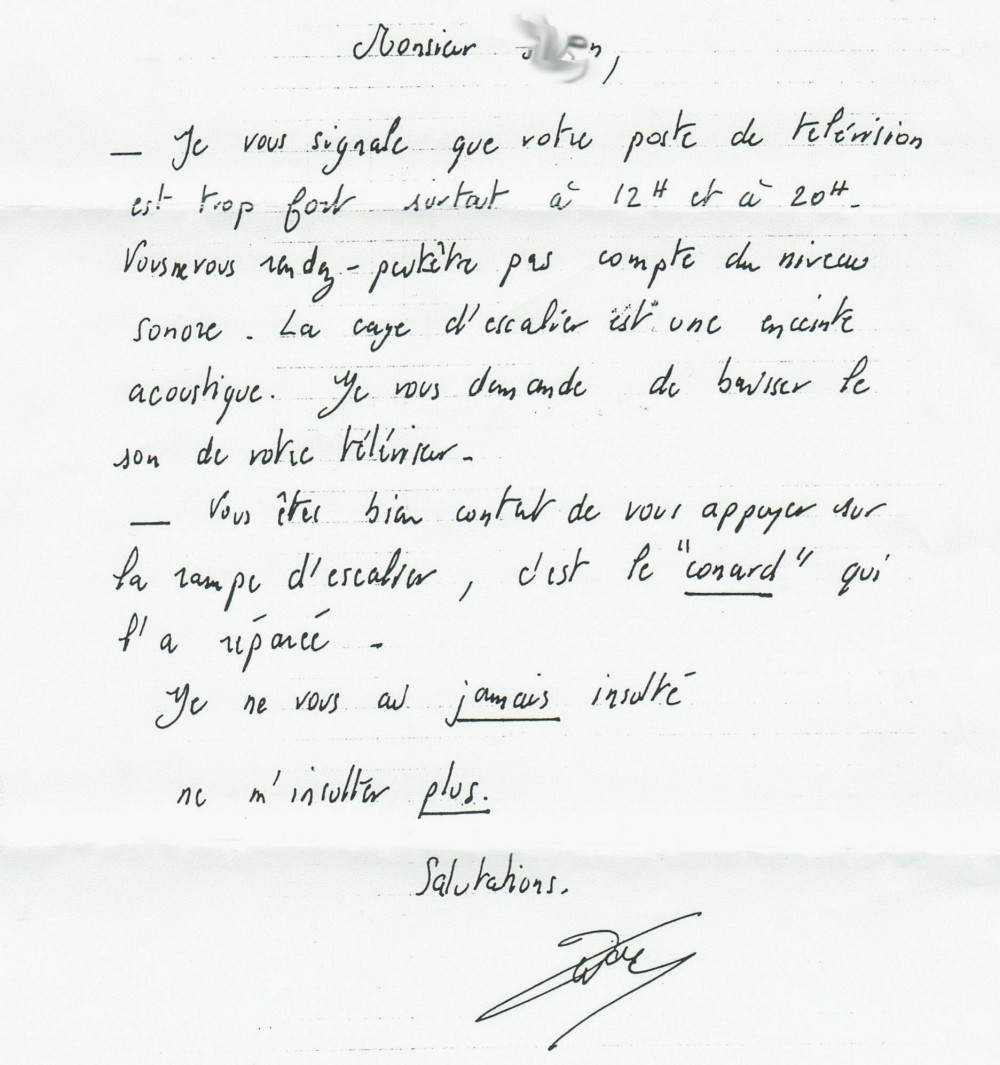 Monsieur
— Je vous signale que votre poste de télévision
est trop fort surtout à 12H et à 20H.
Vous ne vous rendez-peutêtre pas compte du niveau
sonore. La cage d'escalier est une enceinte
acoustique. Je vous demande de baisser le
son de votre téléviseur.
— Vous êtes bien content de vous appuyer sur
la rampe d'escalier, c'est le "conard" qui
l'a réparée.
Je ne vous ai jamais insulté
ne m'insulter plus.
Salutations.